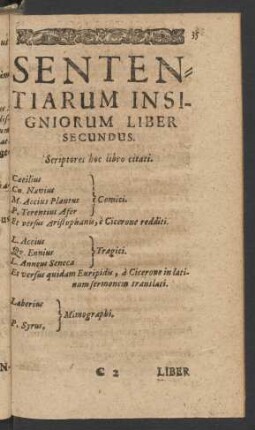 35
SENTEN=
TIARUM INSI-
GNIORUM LIBER
SECUNDUS.
Scriptores hoc libro citati.
Caecilius
Cn. Naevius
M. Accius Plautus
P. Terentius Afer
Comici.
Et versus Aristophanis, à Cicerone redditi.
L. Accius
Q. Ennius
L. Annaeus Seneca
Tragici.
Et versus quidam Euripidis, à Cicerone in lati-
num sermonem translati.
Laberius
P. Syrus,
Mimographi.
C 2
LIBER